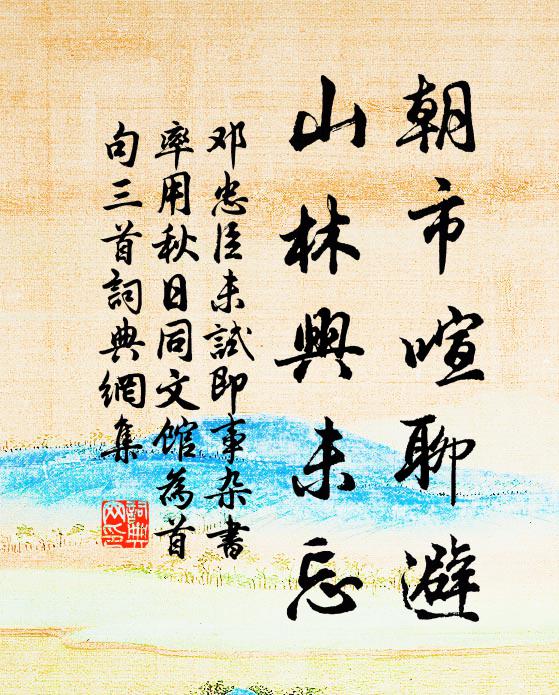 朝市喧聊避
山林興未忘
邓忠臣未試即事杂書
率用秋日同文馆為首
句三首詞典網集
詞典